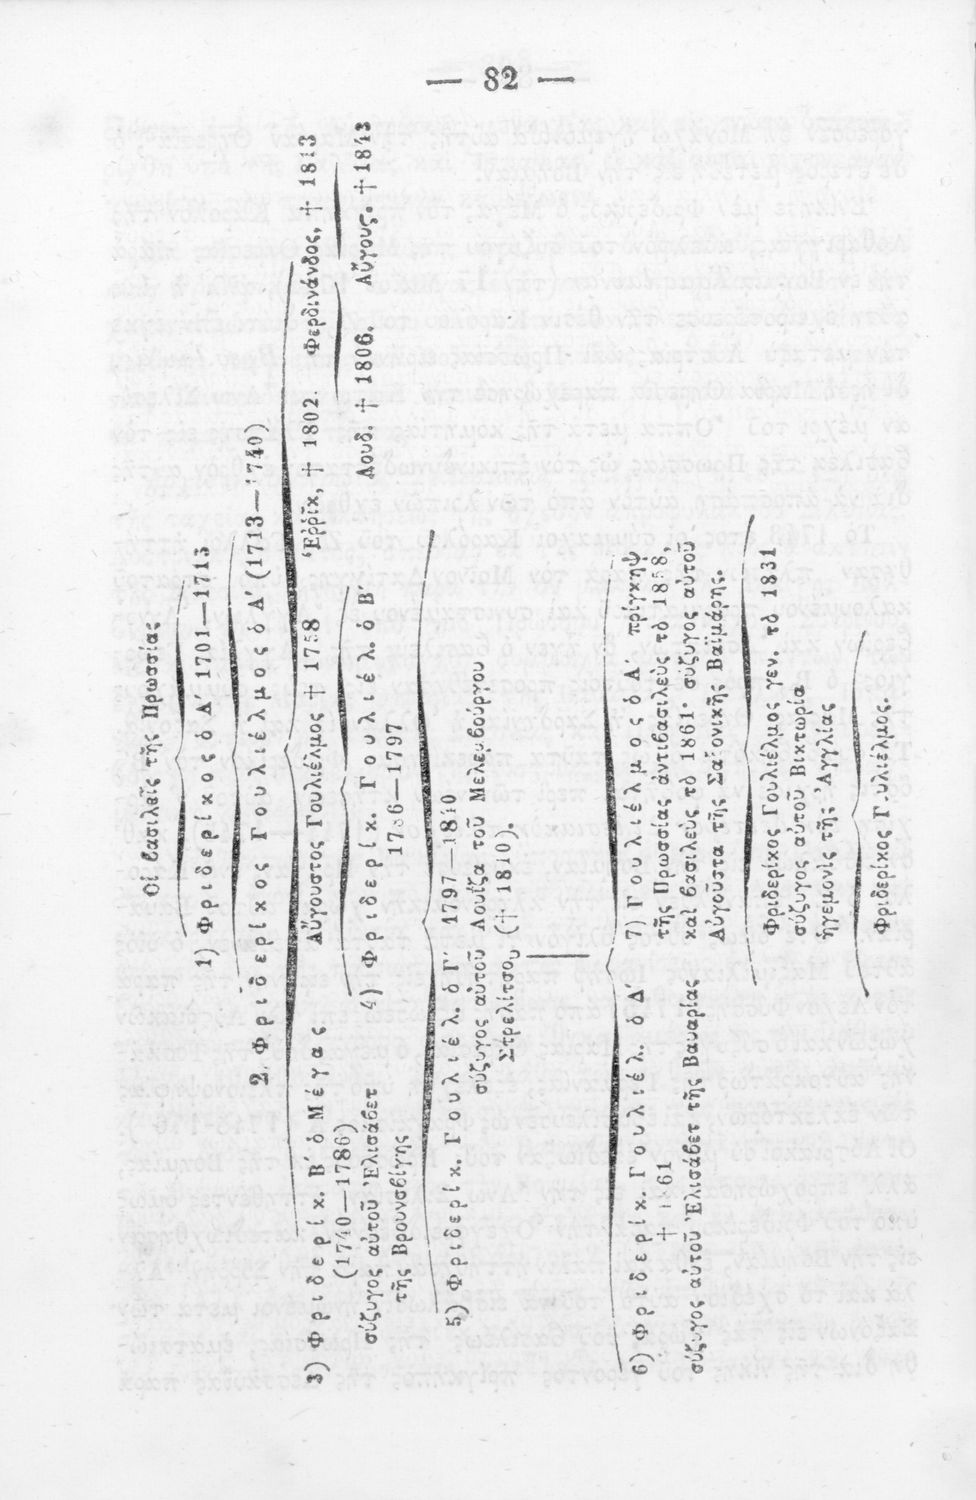 — 82 —
Οἱ βασιλεῖς τῆς Πρωσσίας
1) Φριδερίχος ὁ Α΄ 1701—1713
2. Φριδερίχος Γουλιέλμος ὁ Α΄ (1713—1740)
3) Φριδερίχ. Β΄ ὁ Μέγας
(1740—1786)
σύζυγος αὐτοῦ Ἐλισάβετ
τῆς Βρουνσβίγης
Αὔγουστος Γουλιέλμος † 1758
Ἑρρῖκ, † 1802.
Φερδινάνδος, † 1813
4) Φριδερίχ. Γουλιέλ. ὁ Β΄
1786—1797
Λουδ. † 1806.
Αὔγους. † 1843
5) Φριδερίχ. Γουλιέλ. ὁ Γ΄ 1797—1840
σύζυγος αὐτοῦ Λουΐζα τοῦ Μελεμβούργου
Στρελίτσου († 1810).
6) Φριδερίχ. Γουλιέλ. ὁ Δ΄
† 1861
σύζυγος αὐτοῦ Ἐλισάβετ τῆς Βαυαρίας
7) Γουλιέλμος ὁ Α΄ πρίγκηψ
τῆς Πρωσσίας ἀντιβασιλεὺς τὸ 1858,
καὶ βασιλεὺς τὸ 1861· σύζυγος αὐτοῦ
Αὐγοῦστα τῆς Σαξονικῆς Βαϊμάρης.
Φριδερίκος Γουλιέλμος γεν. τὸ 1831
σύζυγος αὐτοῦ Βικτωρία
ἡγεμονὶς τῆς Ἀγγλίας
Φριδερίκος Γουλιέλμος.